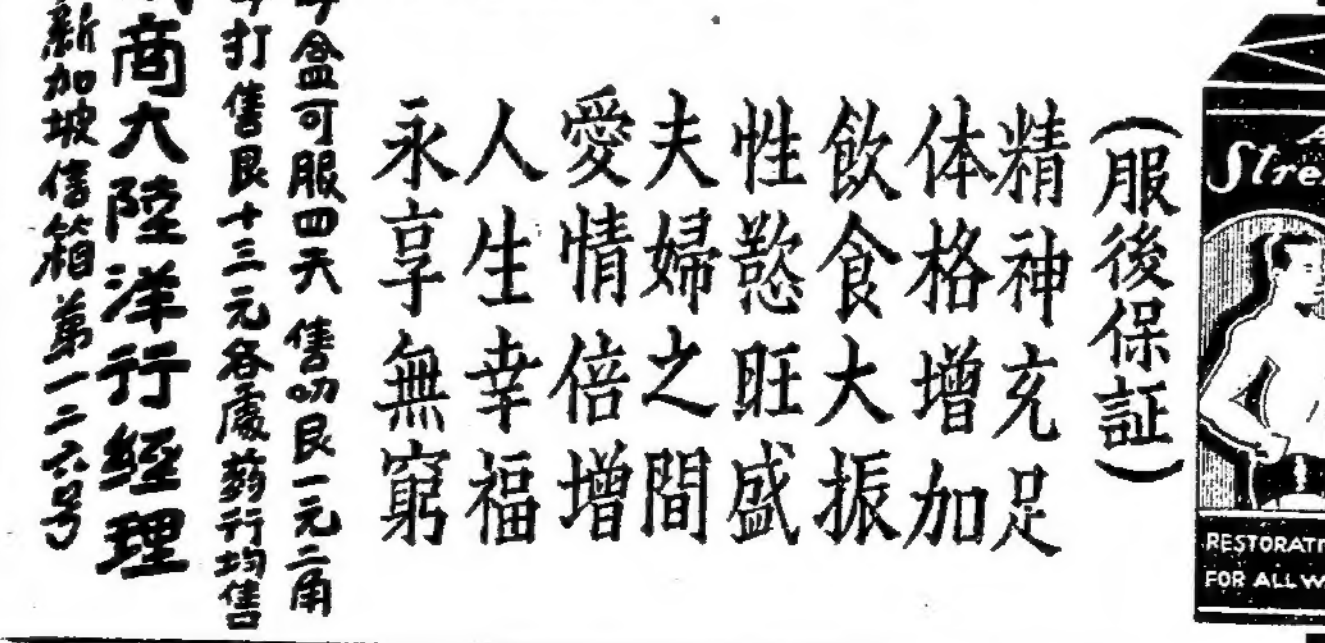 Stre
RESTORATI
FOR ALL W
(服後保証)
精神充足
体格增加
飲食大振
性慾旺盛
夫婦之間
愛情倍增
人生幸福
永享無窮
盒可服四天售叻艮一元二角
打售艮十三元各處药行均售
商大陸洋行經理
新加坡信箱第一二六号